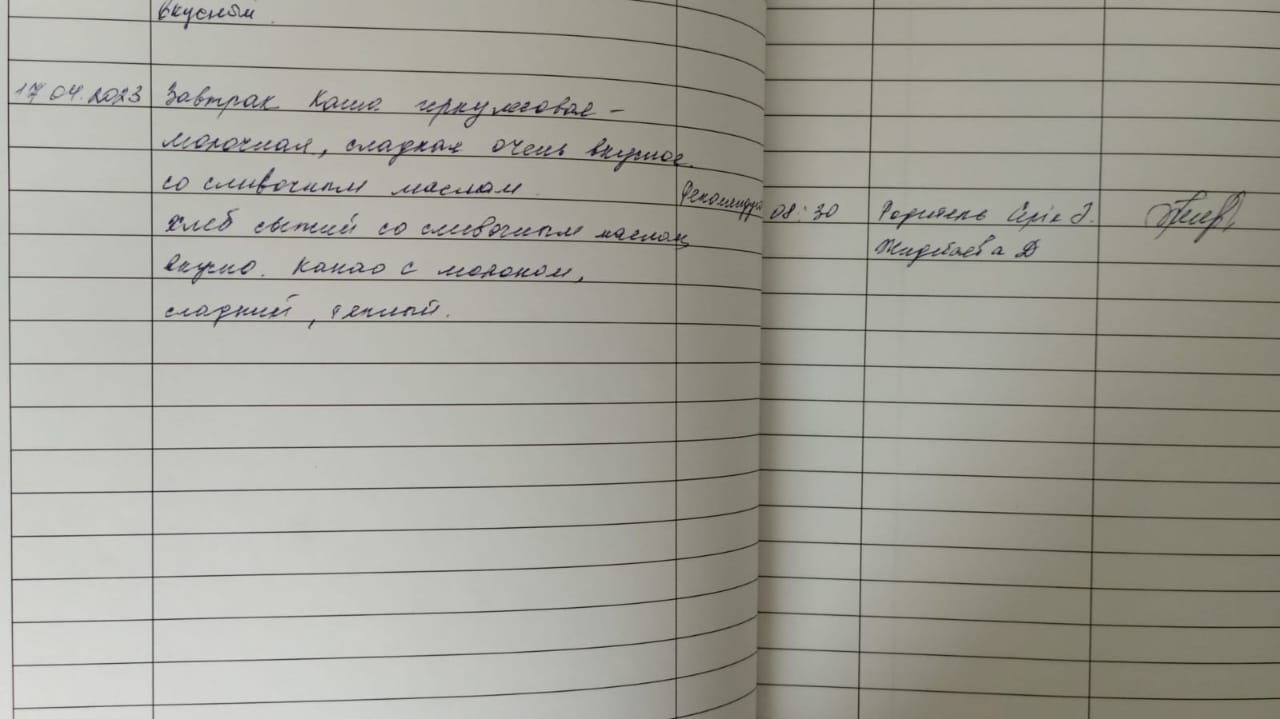 вкусном.
17.04.2023 Завтрак Каша геркулесовая -
молочная, сладкая очень вкусное
со сливочным маслам.
Рекомендую 08:30 Родитель Серік Э.
хлеб свежий со сливочным маслом
Жидебаева Д
вкусно. Какао с молоком,
сладкий, теплый.